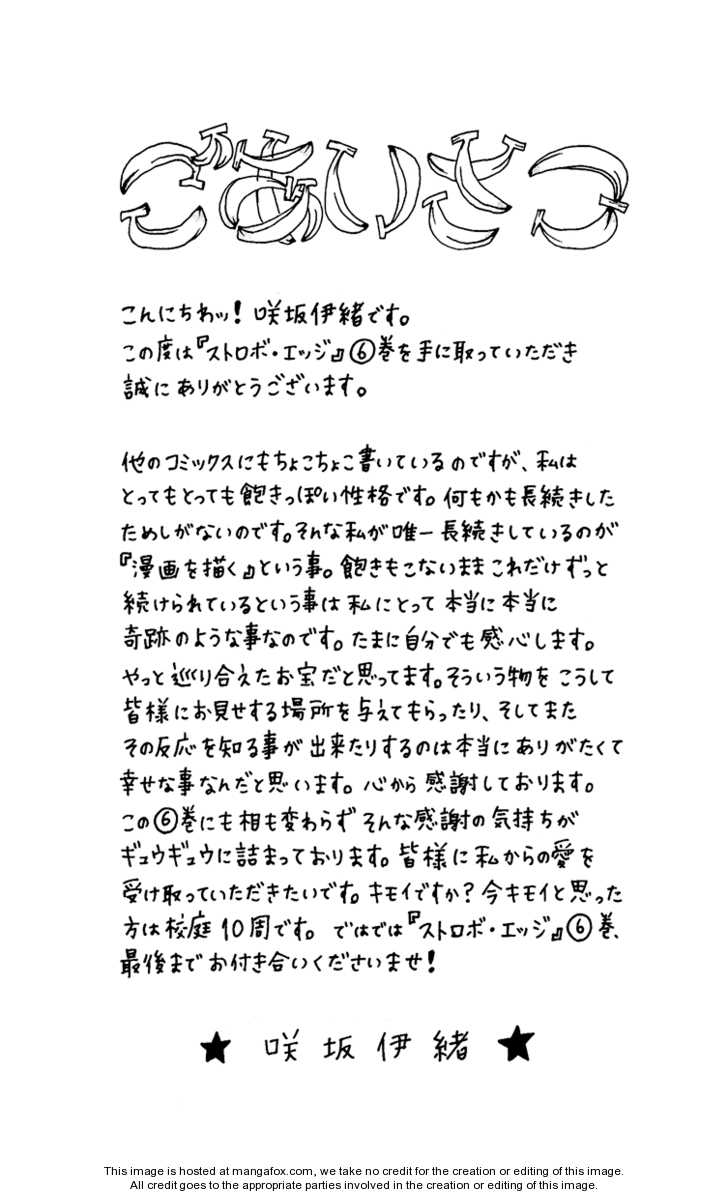 ごあいさつ
こんにちわッ！ 咲坂伊緒です。
この度は『ストロボ・エッジ』⑥巻を手に取っていただき
誠にありがとうございます。
他のコミックスにもちょこちょこ書いているのですが、私は
とってもとっても飽きっぽい性格です。何もかも長続きした
ためしがないのです。そんな私が唯一長続きしているのが
『漫画を描く』という事。飽きもこないままこれだけずっと
続けられているという事は私にとって本当に本当に
奇跡のような事なのです。たまに自分でも感心します。
やっと巡り合えたお宝だと思ってます。そういう物をこうして
皆様にお見せする場所を与えてもらったり、そしてまた
その反応を知る事が出来たりするのは本当にありがたくて
幸せな事なんだと思います。心から感謝しております。
この⑥巻にも相も変わらずそんな感謝の気持ちが
ギュウギュウに詰まっております。皆様に私からの愛を
受け取っていただきたいです。キモイですか？今キモイと思った
方は校庭10周です。 ではでは『ストロボ・エッジ』⑥巻、
最後までお付き合いくださいませ！
★ 咲坂伊緒 ★
This image is hosted at mangafox.com, we take no credit for the creation or editing of this image.
All credit goes to the appropriate parties involved in the creation or editing of this image.